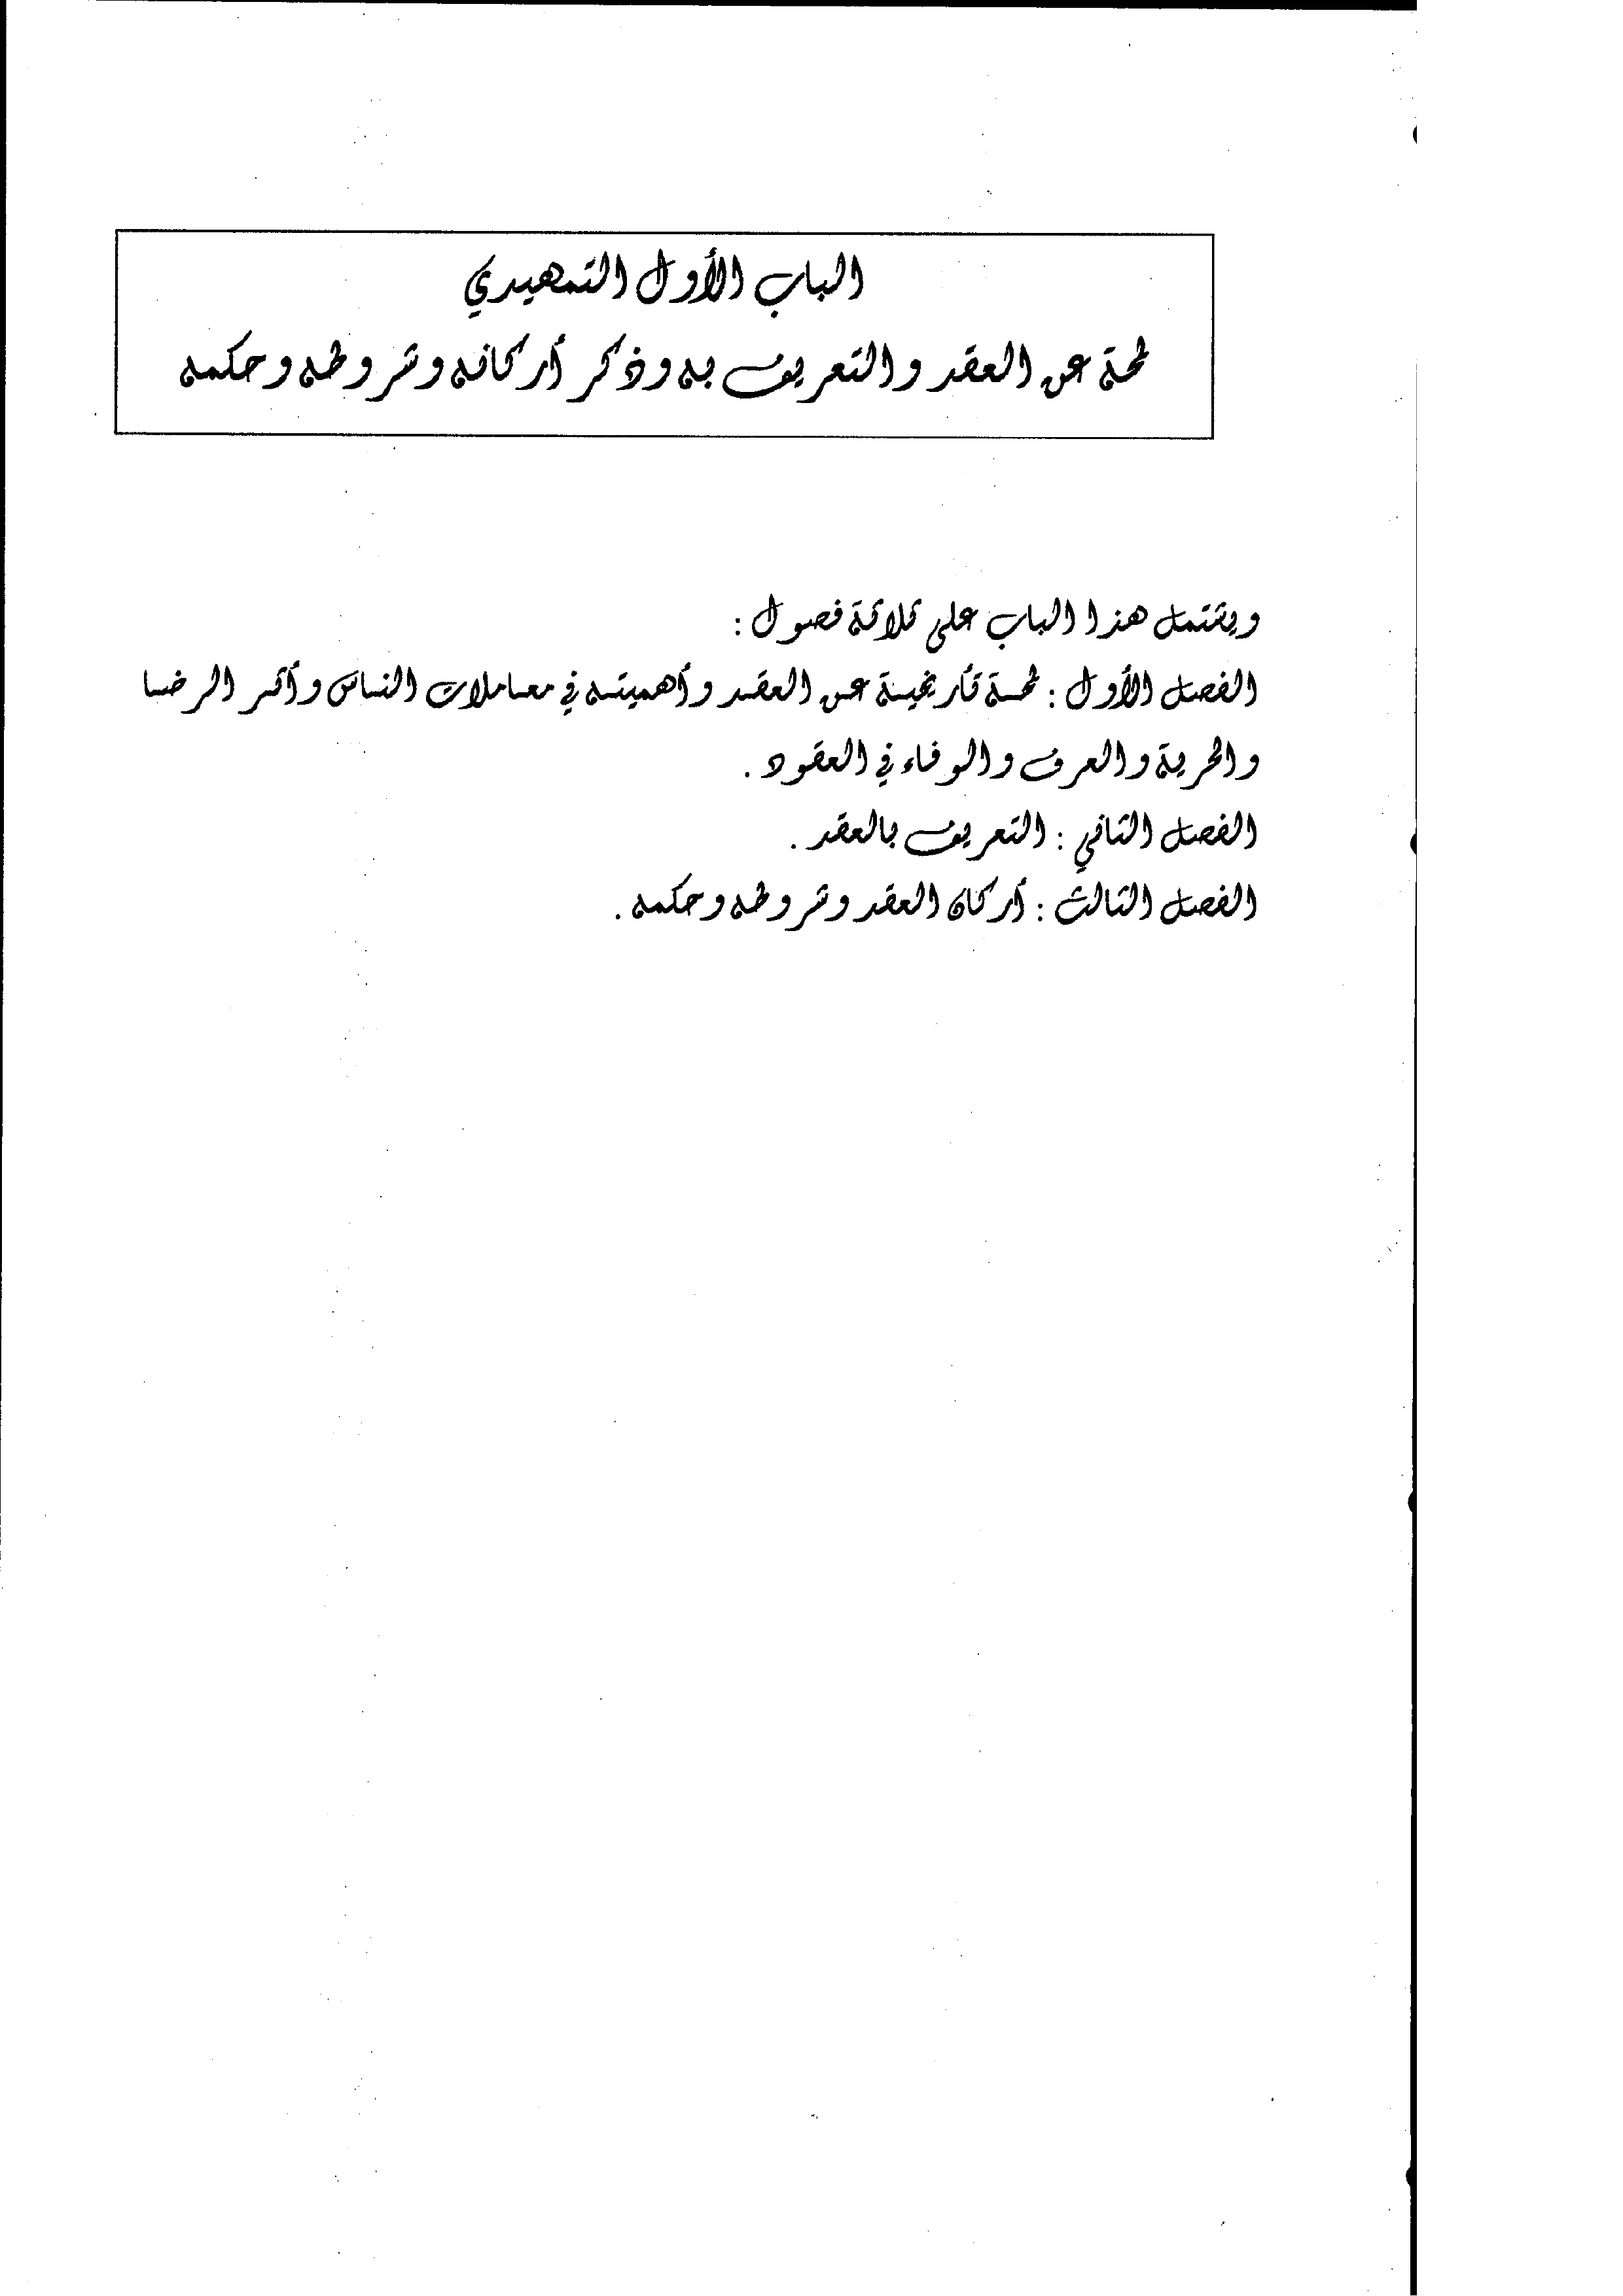 الباب الأول التمهيدي
لمحة عن العقد والتعريف به وذكر أركانه وشروطه وحكمه
ويشتمل هذا الباب على ثلاثة فصول :
الفصل الأول : لمحة تأريخية عن العقد وأهميته في معاملات الناس وأثر الرضا
والحرية والعرف والوفاء في العقود .
الفصل الثاني : التعريف بالعقد .
الفصل الثالث : أركان العقد وشروطه وحكمه .